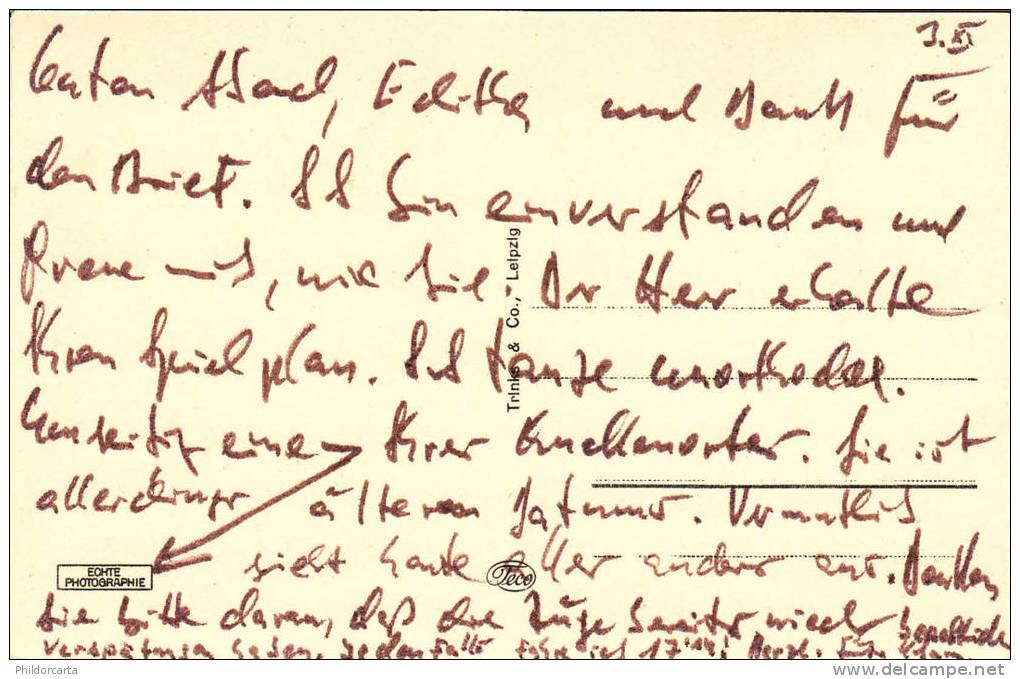 1. XI.
Guten Abend, Editha, und Dank für
den Brief. Ich bin einverstanden und
freue mich, wie Sie. Der Herr erhalte
Ihren Spielplan. Ich tanze unorthodox.
Umseitig eine Ihrer Ist
allerdings älteren Datums. Vermutlich
sieht heute alles anders aus. Denken
Sie bitte daran, daß die Züge bereits wieder
Verspätung haben. Jedenfalls fahre ich 17 Herzl.
Trinks & Co., Leipzig
ECHTE
PHOTOGRAPHIE
Teco
Phildorcarta
delcampe.net